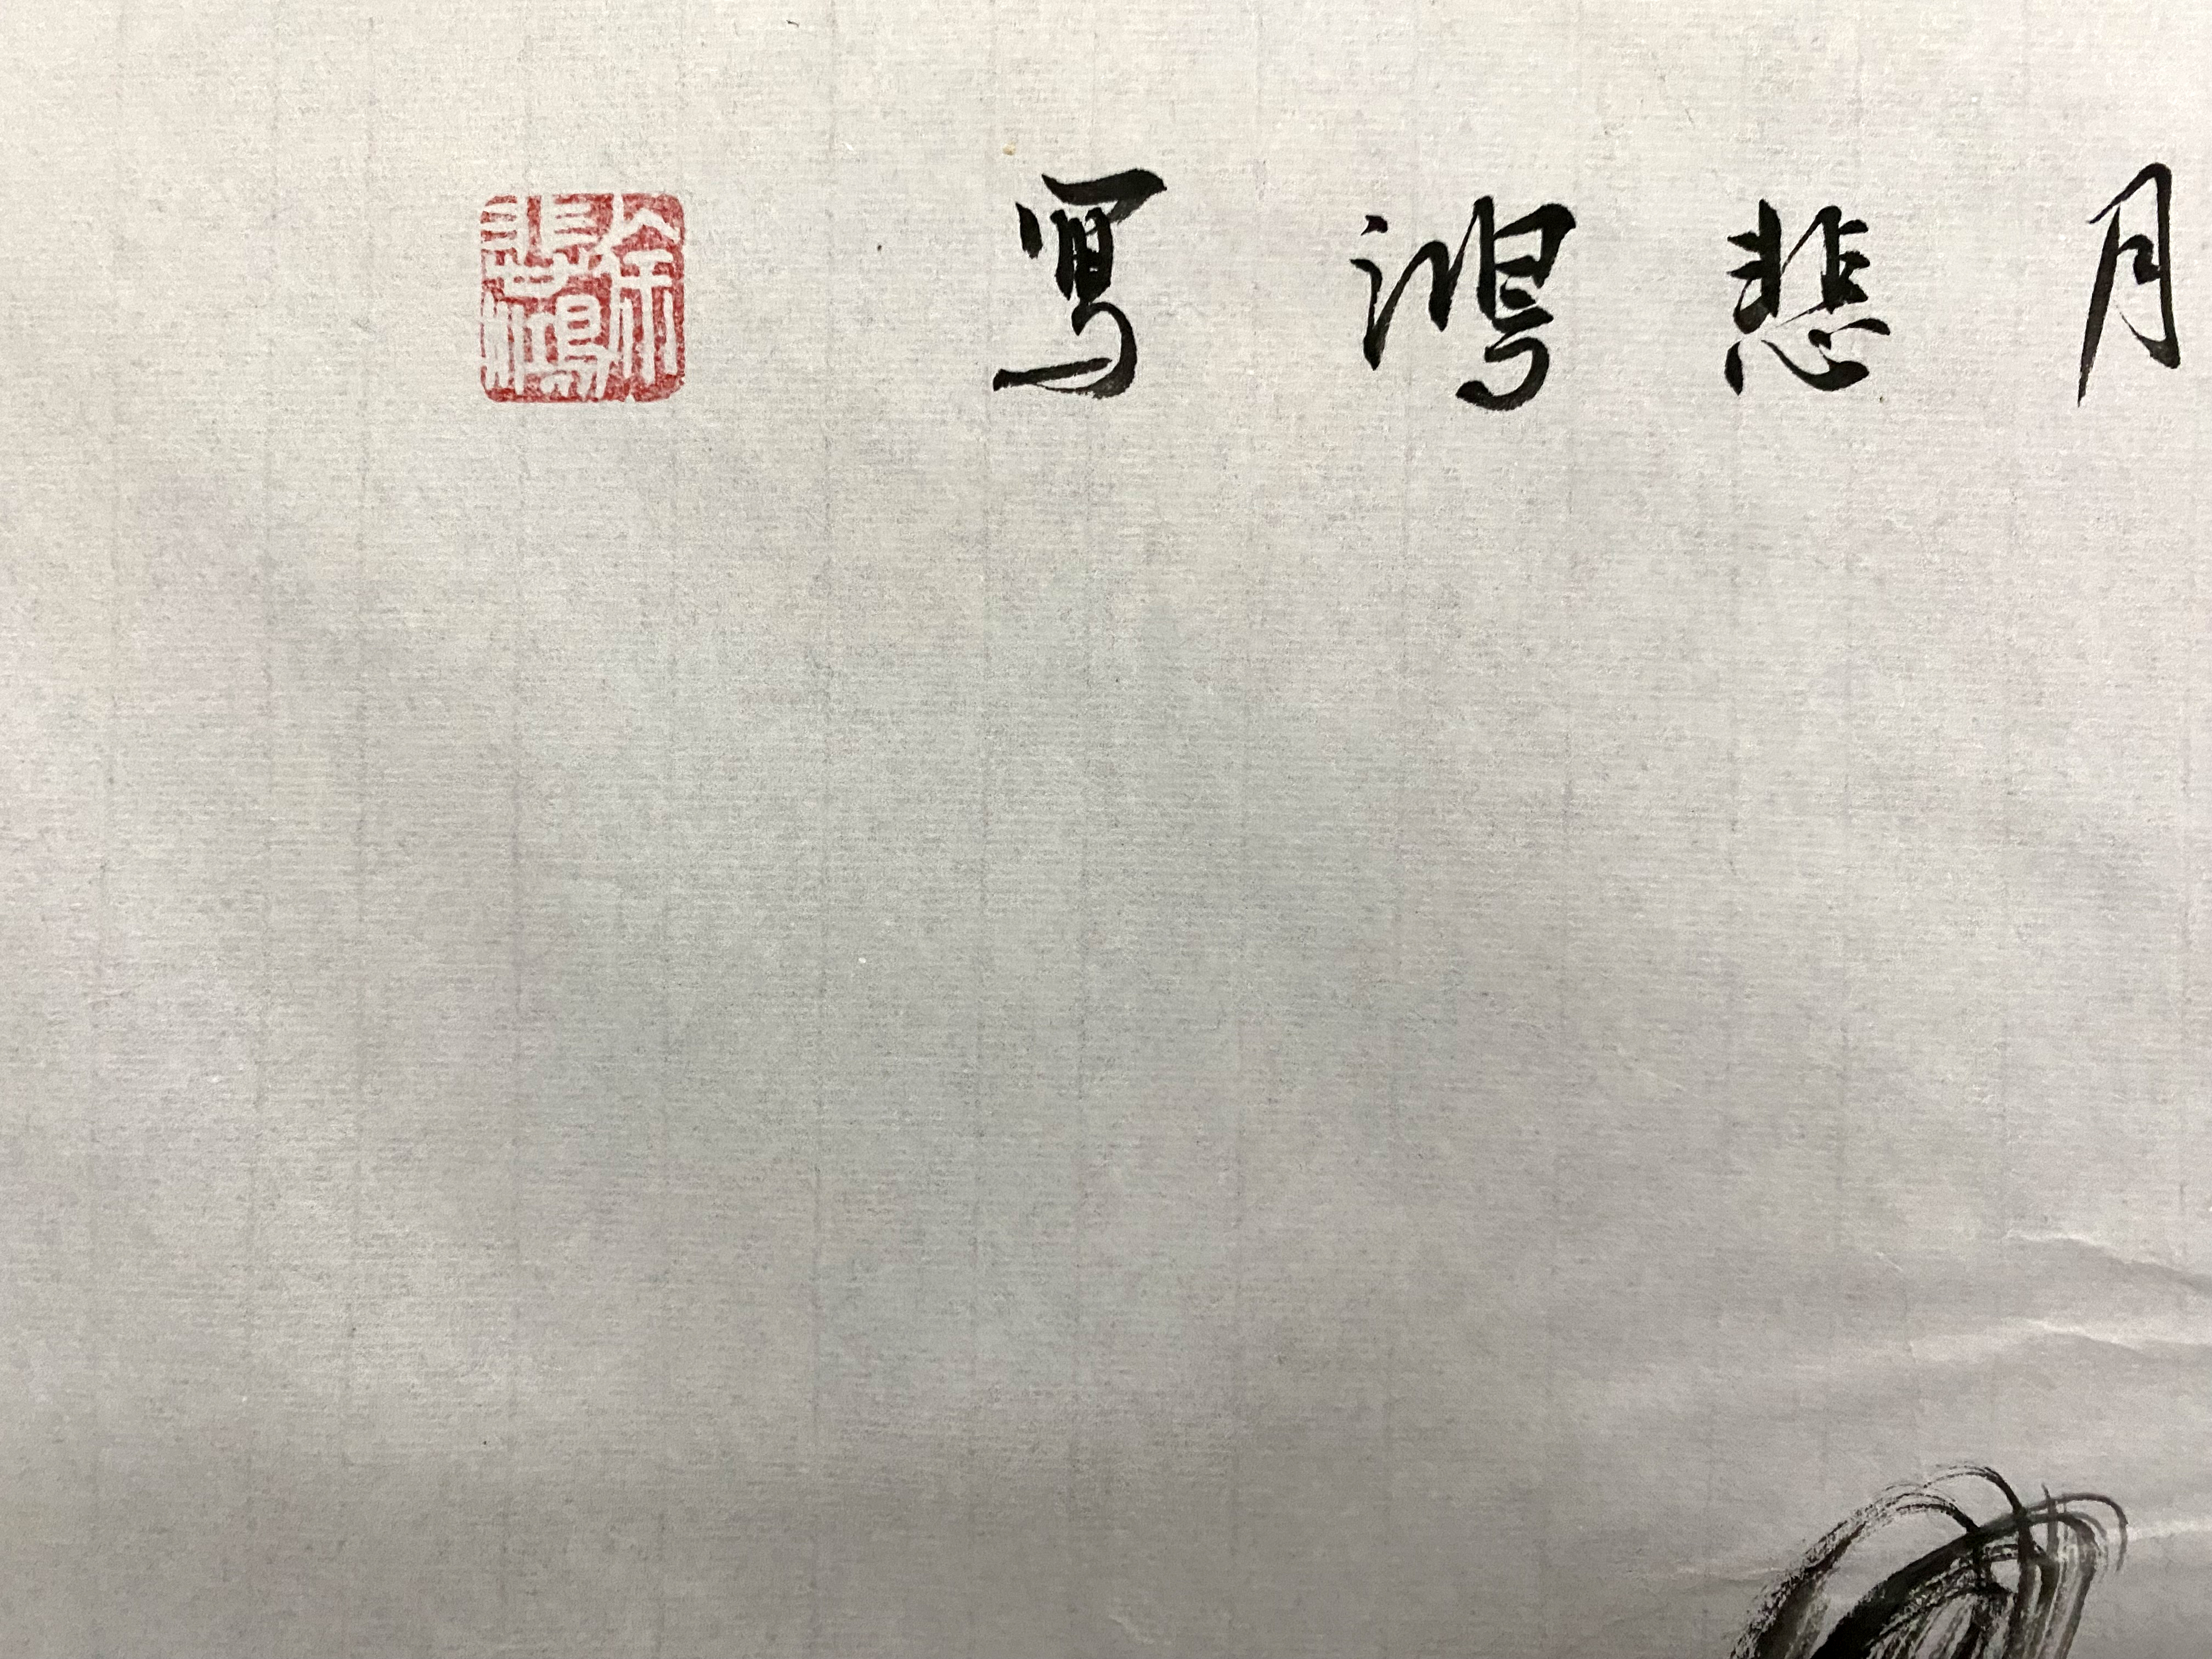 月悲鴻寫
徐悲鴻